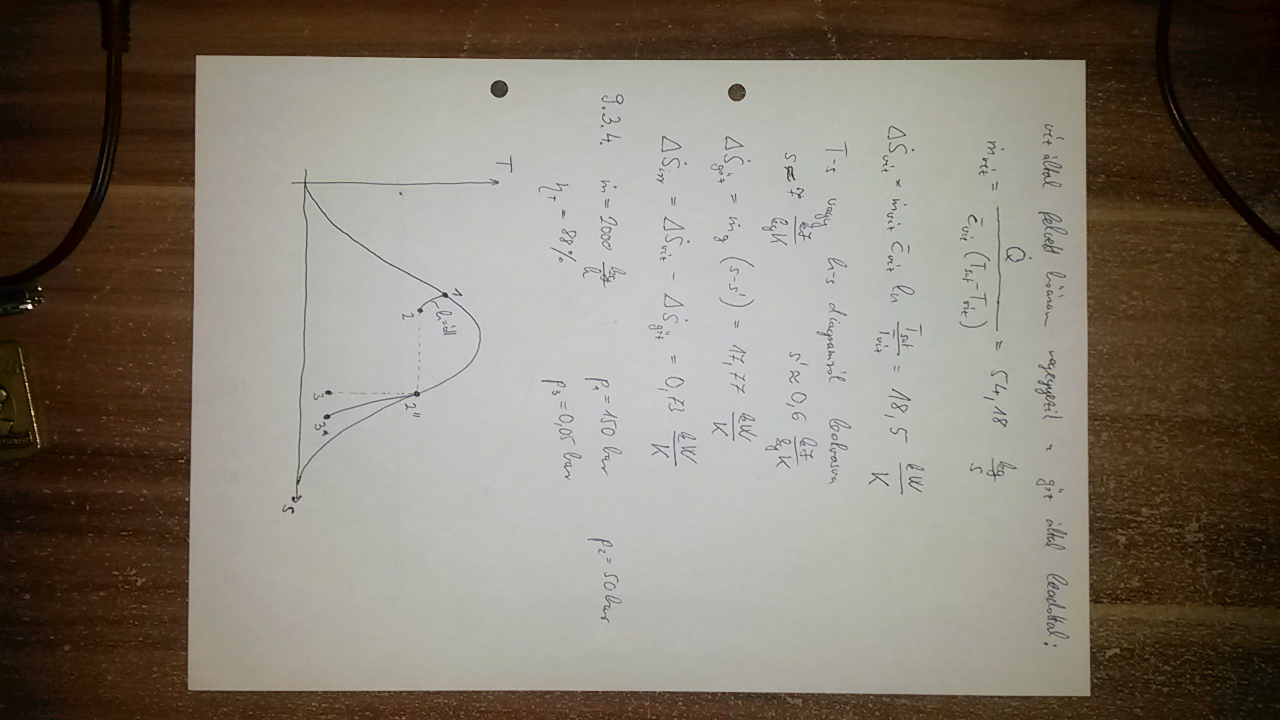 víz által felvett hőáram megegyezik a gőz által leadottal:
ṁvíz = Q̇ / c̄víz (Tsat-Tvíz) = 54,18 kg/s
ΔṠvíz = ṁvíz c̄víz ln Tsat/Tvíz = 18,5 kW/K
T-s vagy h-s diagramról leolvasva
s≈7 kJ/kgK s'≈0,6 kJ/kgK
ΔṠgőz = ṁg (s-s') = 17,77 kW/K
ΔṠirr = ΔṠvíz - ΔṠgőz = 0,73 kW/K
9.3.4. ṁ = 2000 kg/h p1=150 bar p2=50 bar
ηT = 88% p3=0,05 bar
T
1
h=áll
2
2"
3
3*
s